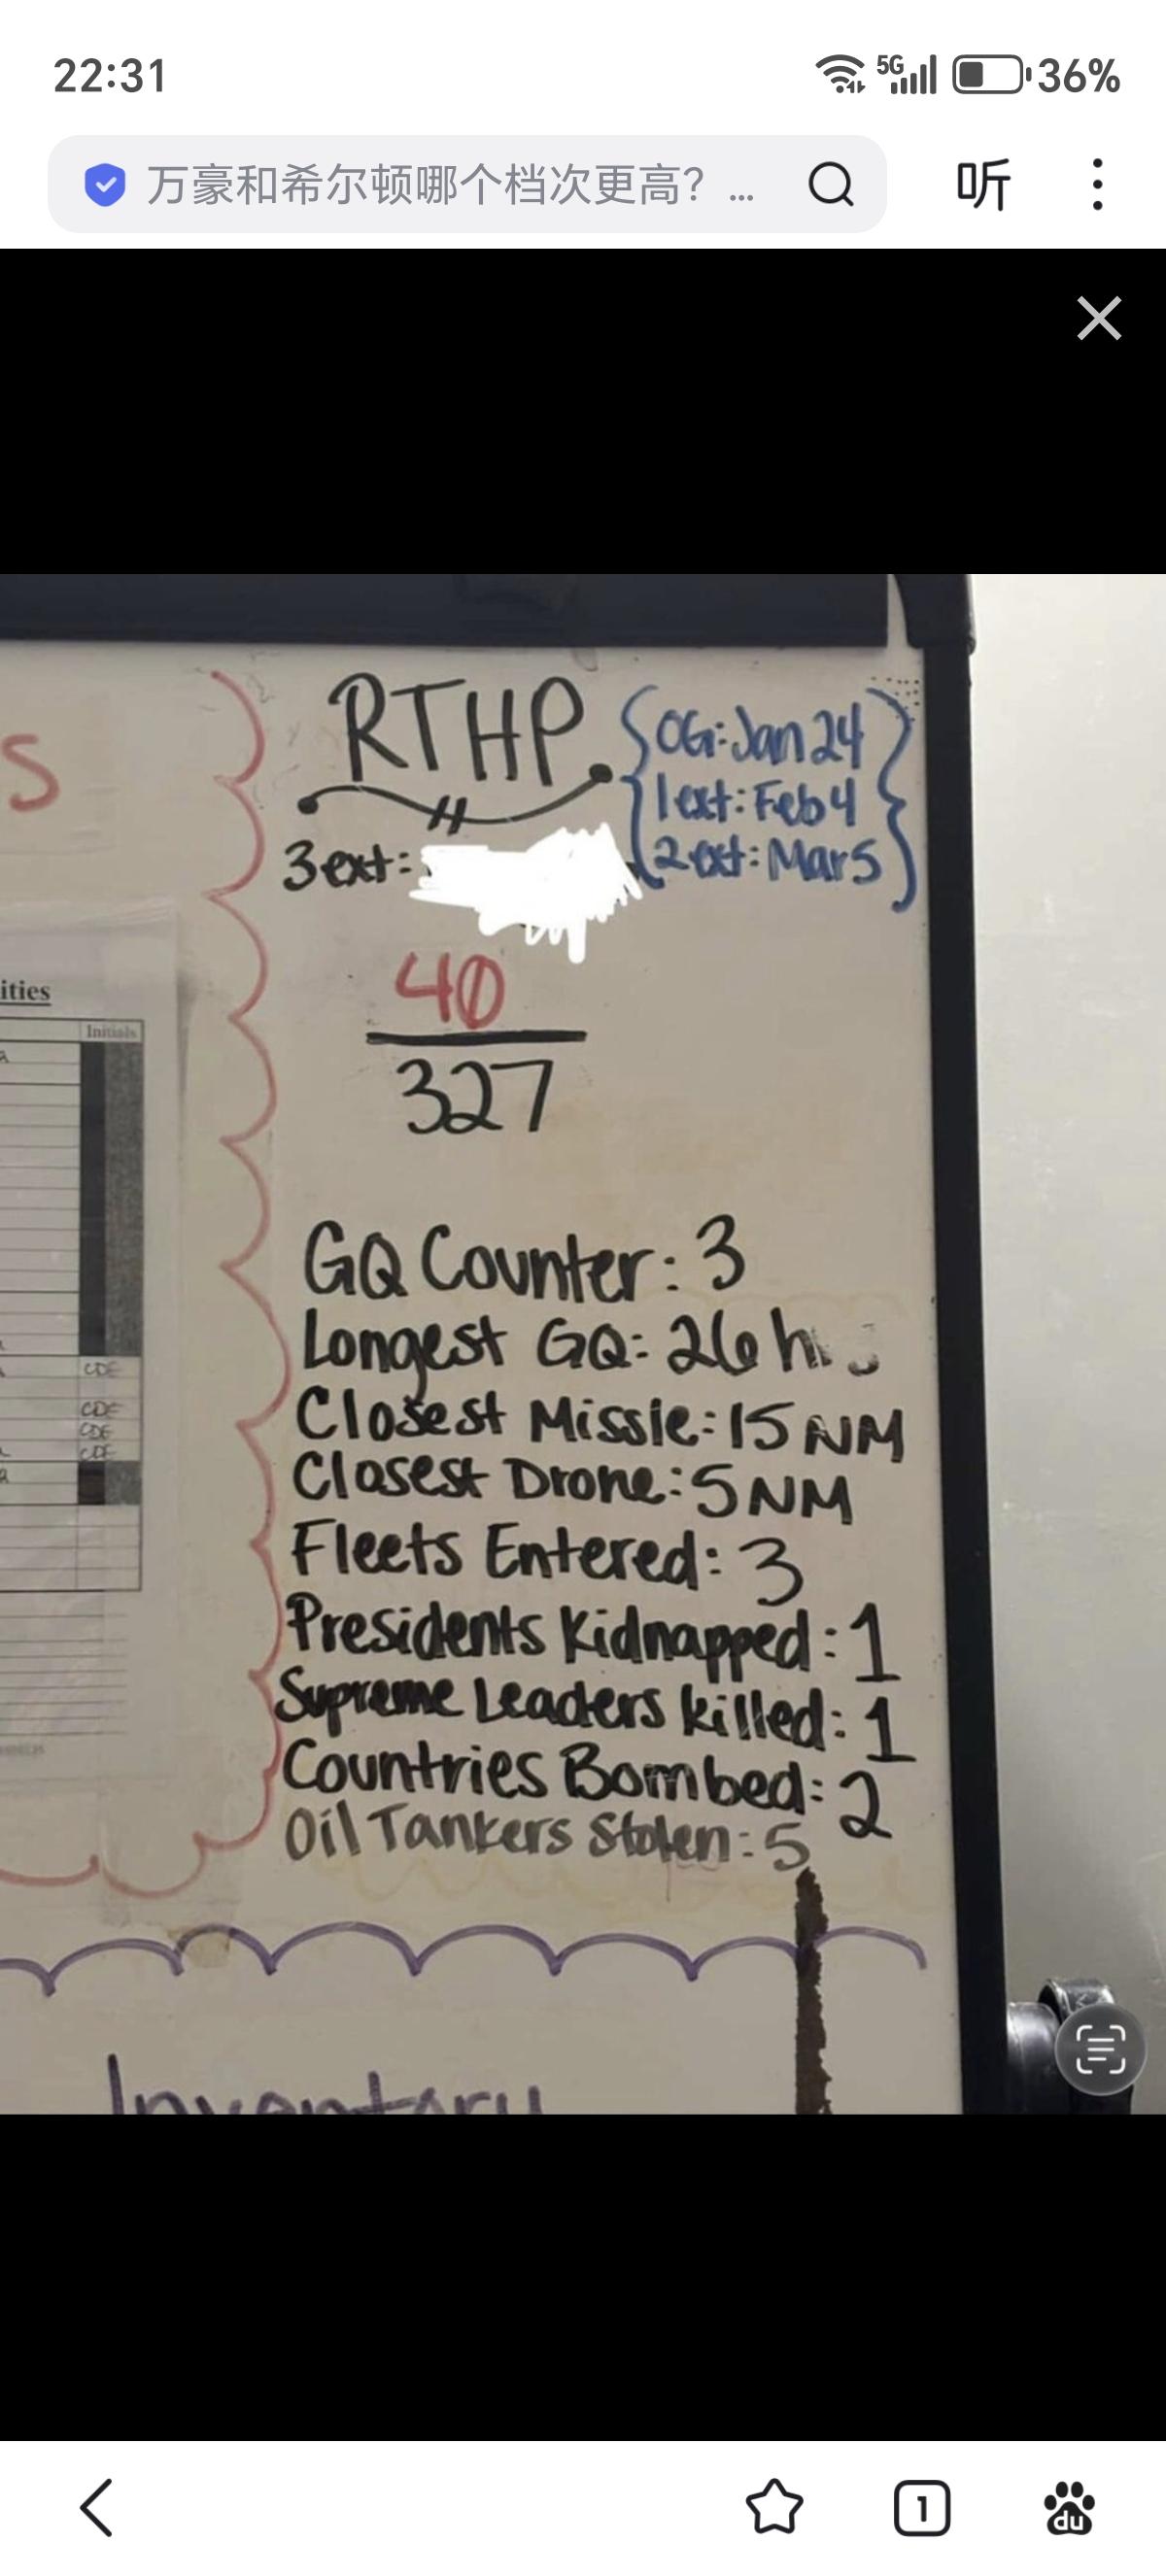 22:31
5G
36%
万豪和希尔顿哪个档次更高？...
听
RTHP
OG: Jan 24
1ext: Feb 4
2ext: Mar 5
3ext:
S
40
327
ities
Initials
CDE
CDE
CDE
CDE
GQ Counter: 3
Longest GQ: 26 hrs
Closest Missle: 15 NM
Closest Drone: 5 NM
Fleets Entered: 3
Presidents Kidnapped: 1
Supreme Leaders killed: 1
Countries Bombed: 2
Oil Tankers Stolen: 5
Inventory
1
du